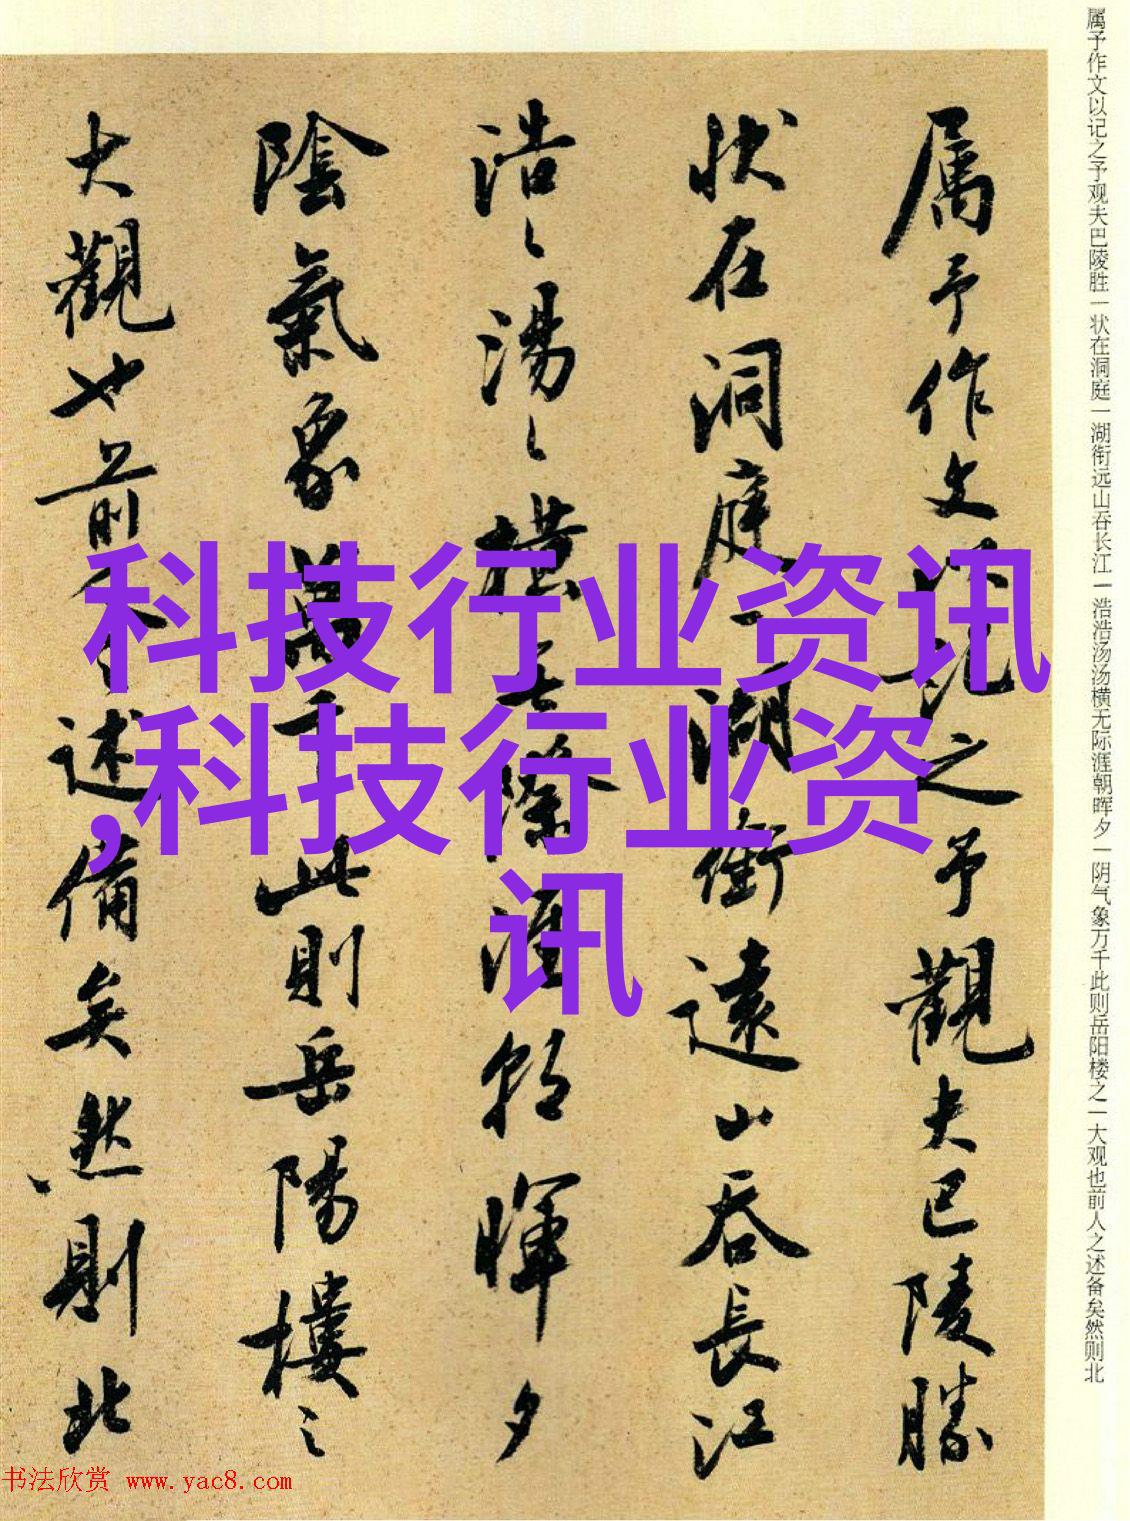 属予作文以记之予观夫巴陵胜一状在洞庭一湖衔远山吞长江一浩浩汤汤横无际涯朝晖夕一阴气象万千此则岳阳楼之一大观也前人之述备矣然则北
属予作文以記之予觀夫巴陵勝
状在洞庭一湖衔遠山吞長江
浩〻湯〻横無際涯朝暉夕
陰氣象萬千此則岳陽樓之
大觀也前人之述備矣然則北
科技行业资讯
,科技行业资
讯
书法欣赏 www.yac8.com